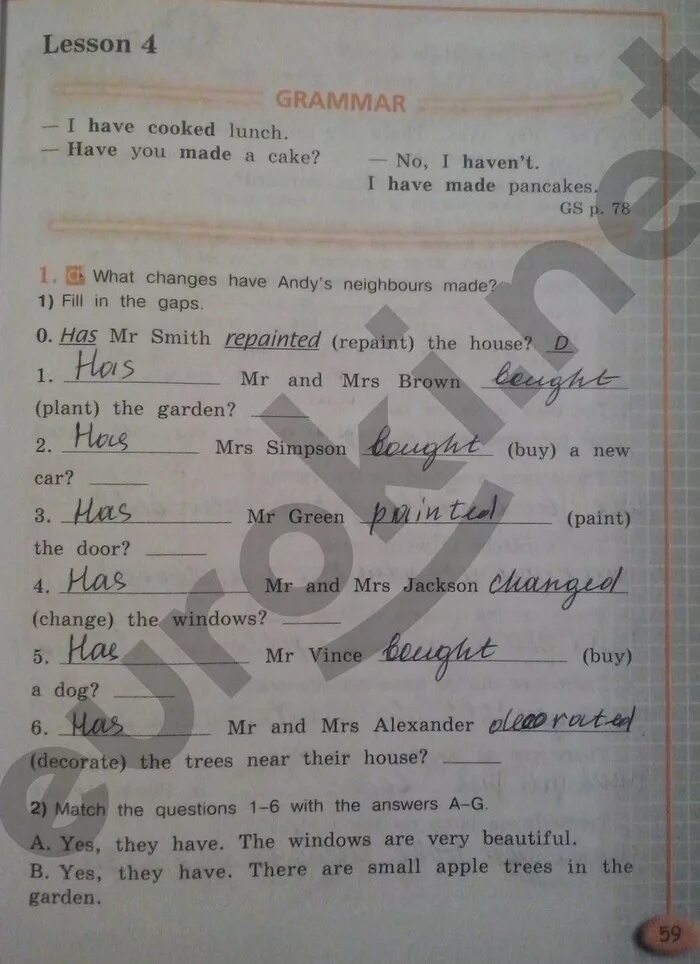 Lesson 4
GRAMMAR
— I have cooked lunch.
— Have you made a cake?
— No, I haven't.
I have made pancakes.
GS p. 78
1. What changes have Andy's neighbours made?
1) Fill in the gaps.
0. Has Mr Smith repainted (repaint) the house? D
1. Has Mr and Mrs Brown bought
(plant) the garden?
2. Has Mrs Simpson bought (buy) a new
car?
3. Has Mr Green painted (paint)
the door?
4. Has Mr and Mrs Jackson changed
(change) the windows?
5. Has Mr Vince bought (buy)
a dog?
6. Has Mr and Mrs Alexander decorated
(decorate) the trees near their house?
2) Match the questions 1–6 with the answers A–G.
A. Yes, they have. The windows are very beautiful.
B. Yes, they have. There are small apple trees in the
garden.
59
eurokl.net